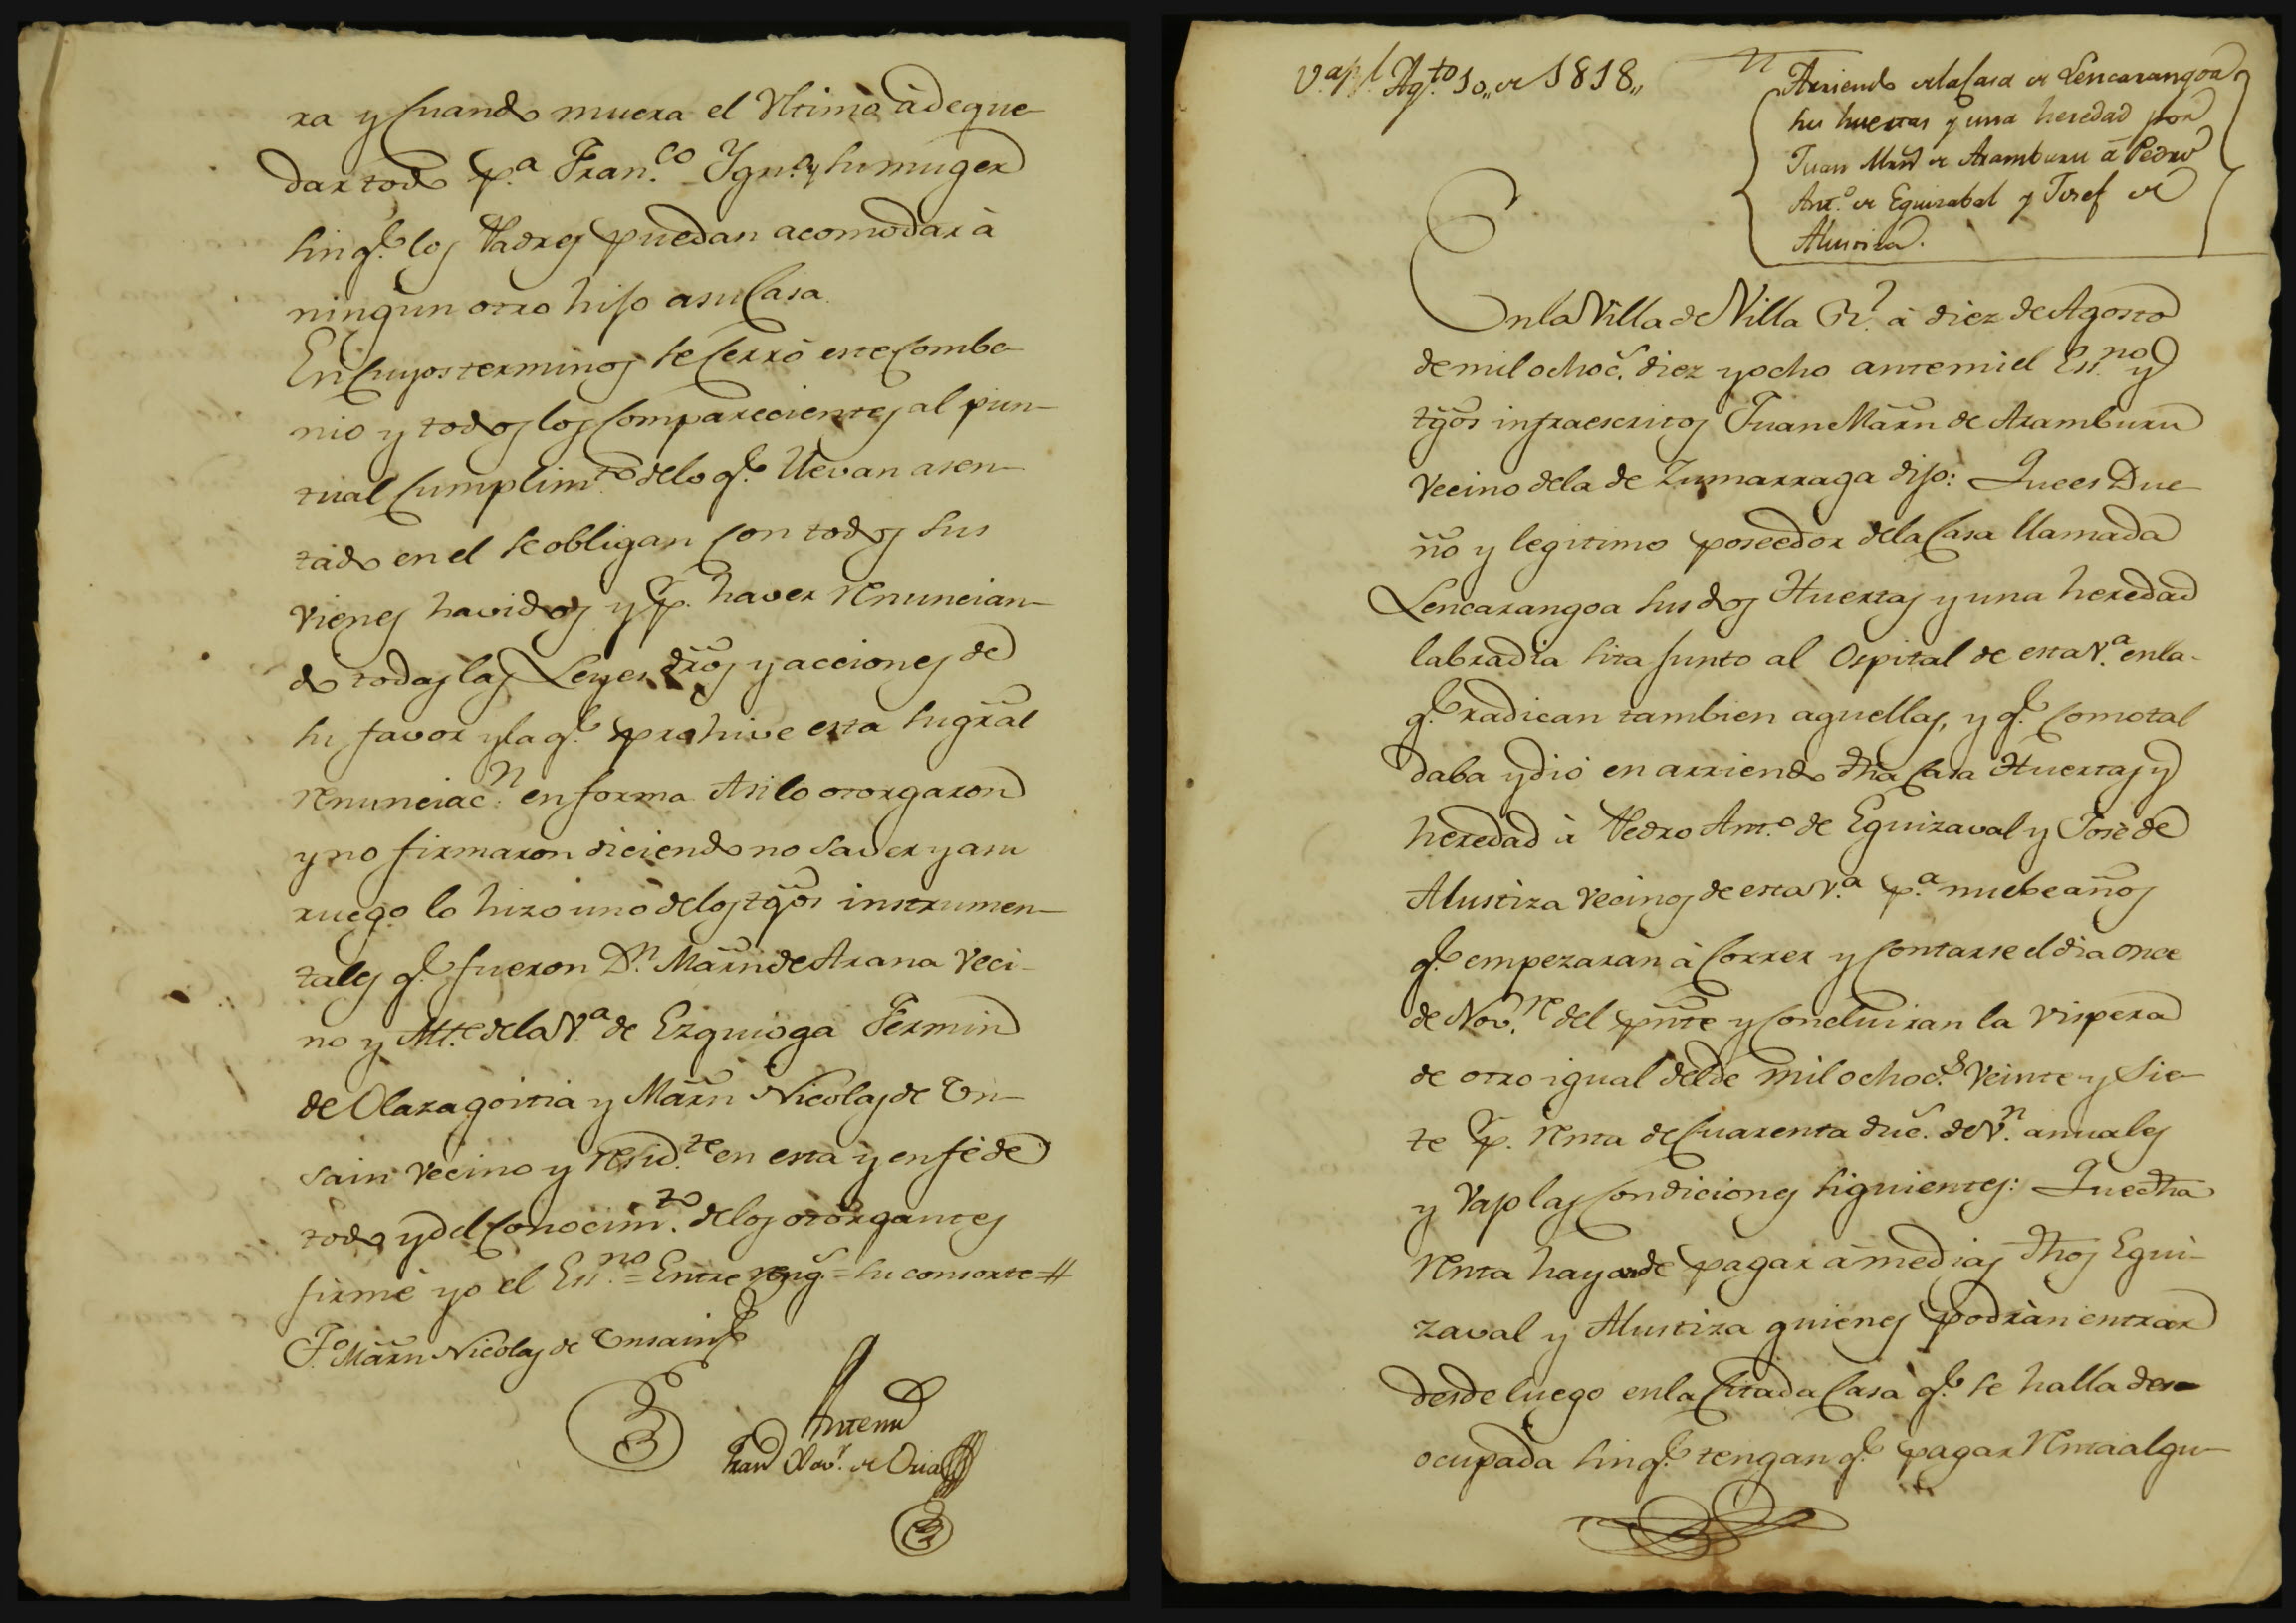 ra y Cuando muera el Ultimo à de que-
dar todo p.ª Fran.co Ygn.º y su muger
sin q.e los Padres puedan acomodar à
ningun otro hijo a su Casa.
En Cuyos terminos se Cerrò este Combe-
nio y todos los Comparecientes al pun-
tual Cumplim.to de lo q.e llevan asen-
tado en el se obligan Con todos sus
vienes havidos y p.r haver renuncian-
do todas las Leyes dros y acciones de
su favor y la q.e prohive esta su gral
renunciac.n en forma Asi lo otorgaron
y no firmaron diciendo no saver y a su
ruego lo hizo uno de los tgos instrumen-
tales q.e fueron D.n Marn de Arana Veci-
no y Alt.e de la V.ª de Ezquioga Fermin
de Olazagoitia y Marn Nicolas de Un-
sain Vecino y resid.te en esta y en fè de
todo y del Conocim.to de los otorgantes
firmè yo el Es.no = Entre reng.s = su consorte =#
T.º Marn Nicolas de Unsain
Antemi
Fran Xav.r de Oria
V.ª p.l Ag.to 10,, de 1818,,
Arriendo de la Casa de Lencarangoa
sus huertas y una heredad por
Juan Mrn de Aramburu â Pedro
Ant.º de Eguizabal y Josef de
Alustiza.
En la Villa de Villa R.l à diez de Agosto
de mil ochoc.s diez y ocho ante mi el Es.no y
tgos infraescritos Juan Marn de Aramburu
Vecino de la de Zumarraga dijo: Que es Due-
ño y legitimo poseedor de la Casa llamada
Lencarangoa sus dos Huertas y una heredad
labradia sita junto al Ospital de esta V.ª en la-
q.e radican tambien aquellas, y q.e Como tal
daba y diò en arriendo dha Casa Huertas y
heredad à Pedro Ant.º de Eguizaval y Josè de
Alustiza Vecinos de esta V.ª p.ª nuebe años
q.e empezaran à Correr y Contarse el dia once
de Nov.re del pnte y Concluiran la Vispera
de otro igual del de mil ochoc.s Veinte y Sie-
te p.r renta de Cuarenta duc.s de V.n anuales
y Vajo las Condiciones siguientes: Que dha
renta hayan de pagar à medias dhos Egui-
zaval y Alustiza quienes podràn entrar
desde luego en la Citada Casa q.e se halla des-
ocupada sin q.e tengan q.e pagar renta algu-